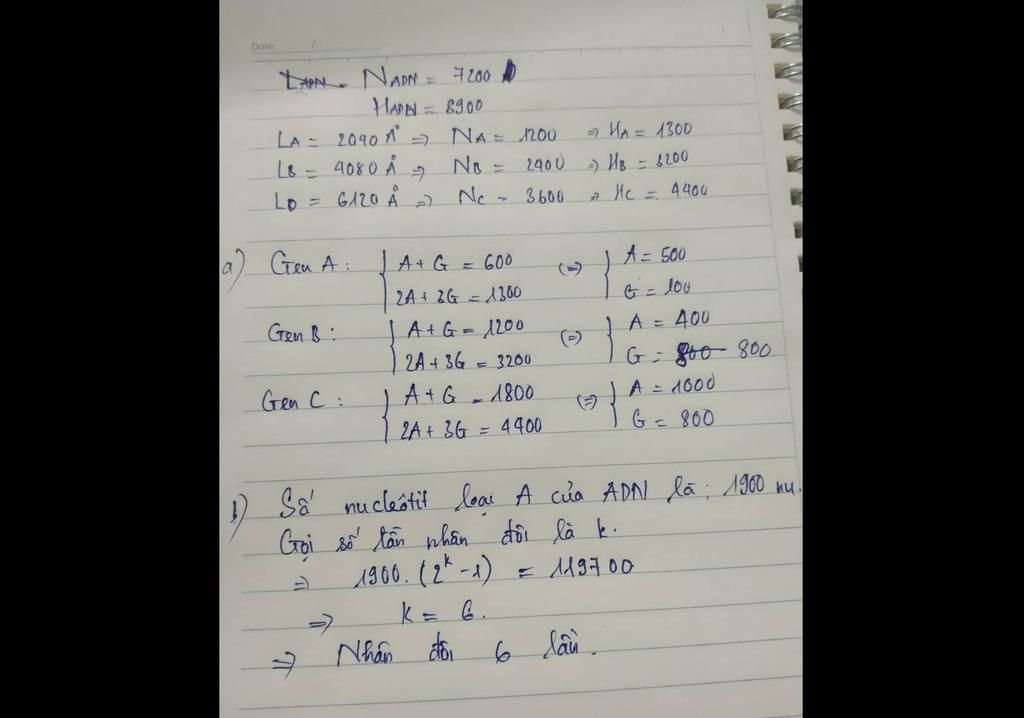 Date. /
L_ADN N_ADN = 7200
H_ADN = 8900
L_A = 2040 Å => N_A = 1200 => H_A = 1300
L_B = 4080 Å => N_B = 2400 => H_B = 3200
L_D = 6120 Å => N_C = 3600 => H_C = 4400
a) Gen A: { A + G = 600 (=) { A = 500
2A + 3G = 1300 G = 100
Gen B: { A + G = 1200 (=) { A = 400
2A + 3G = 3200 G = 800 800
Gen C: { A + G = 1800 (=) { A = 1000
2A + 3G = 4400 G = 800
b) Số nuclêôtit loại A của ADN là: 1900 nu.
Gọi số lần nhân đôi là k.
=> 1900. (2^k - 1) = 119700
=> k = 6.
=> Nhân đôi 6 lần.